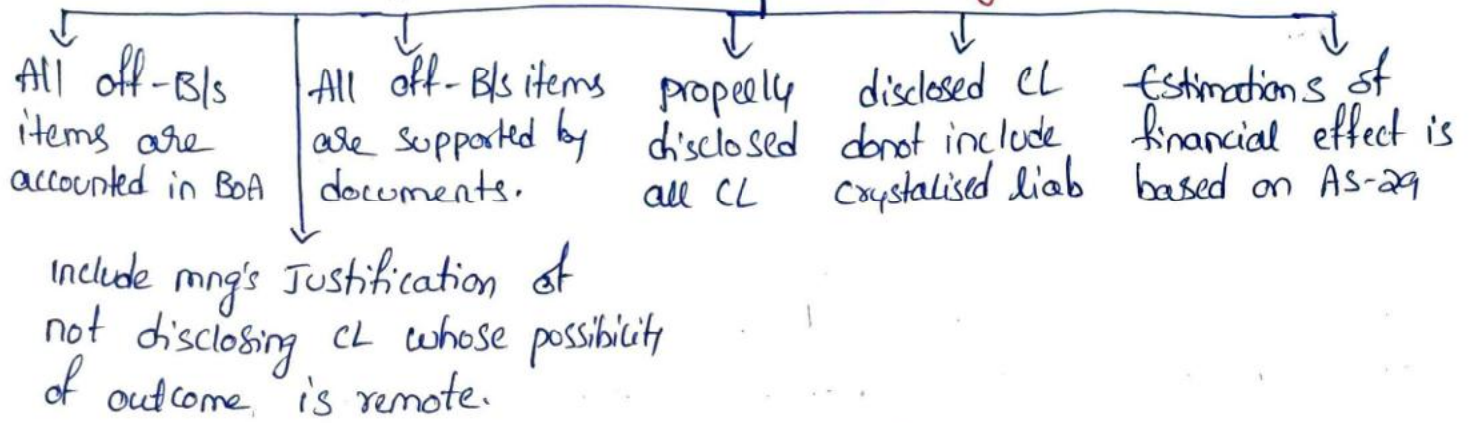 All off-B/s
items are
accounted in BOA
All off-B/s items
are supported by
documents.
properly
disclosed
all CL
disclosed CL
donot include
crystalised liab
Estimations of
financial effect is
based on AS-29
Include mng's Justification of
not disclosing CL whose possibicity
of outcome is remote.